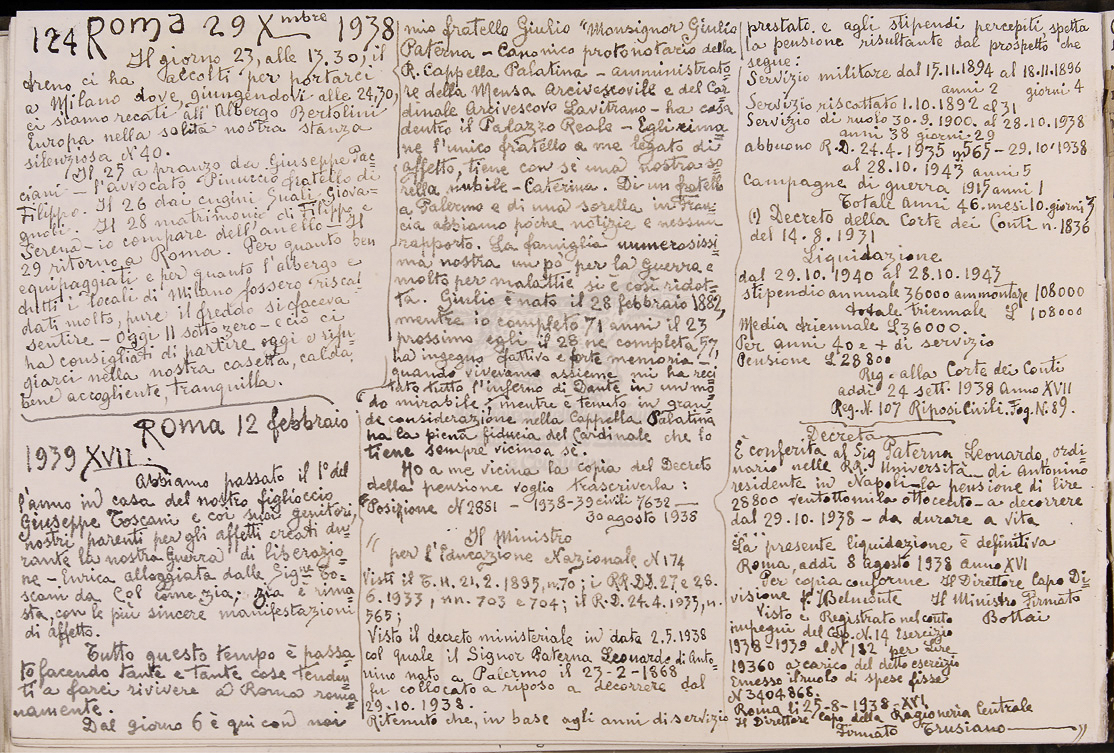 124 Roma 29 Xmbre 1938
Il giorno 23, alle 13.30, il
treno ci ha accolti per portarci
a Milano dove, giungendovi alle 24,30,
ci siamo recati all'Albergo Bertolini
Europa nella solita nostra stanza
silenziosa N° 40.
Il 25 a pranzo da Giuseppe Pac=
ciani - l'avvocato Pinuccio fratello di
Filippo. Il 26 dai cugini Giova=
gnoli. Il 28 matrimonio di Filippo e
Serena - io compare dell'anello - Il
29 ritorno a Roma. Per quanto ben
equipaggiati e per quanto l'albergo e
tutti i locali di Milano fossero risca=
dati molto, pure il freddo si faceva
sentire - Oggi 11 sotto zero - e ciò ci
ha consigliati di partire oggi e rifu=
giarci nella nostra casetta, calda,
bene accogliente, tranquilla.
Roma 12 febbraio
1939 XVII.
Abbiamo passato il 1° del
l'anno in casa del nostro figlioccio
Giuseppe Toscani e coi suoi genitori,
nostri parenti per gli affetti creati du=
rante la nostra Guerra di liberazio
ne - Enrica alloggiata dalle Signe To=
scani da Col come zia; zia è rima=
sta, con le più sincere manifestazioni
di affetto.
Tutto questo tempo è passa=
to facendo tante e tante cose tenden=
ti a farci rivivere a Roma roma=
namente.
Dal giorno 6 è qui con noi
mio fratello Giulio "Monsignor Giulio
Paterna - Canonico protonotario della
R. Cappella Palatina - amministrato=
re della Mensa Arcivescovile e del Car=
dinale Arcivescovo Lavitrano - ha casa
dentro il Palazzo Reale - Egli rima=
ne l'unico fratello a me legato di
affetto, tiene con sè una nostra so=
rella nubile - Caterina. Di un fratello
a Palermo e di una sorella in Fran=
cia abbiamo poche notizie e nessun
rapporto. La famiglia numerosissi=
ma nostra un po' per la Guerra e
molto per malattie si è così ridot=
ta. Giulio è nato il 28 febbraio 1882,
mentre io completo 71 anni il 23
prossimo egli il 28 ne completa 57,
ha ingegno fattivo e forte memoria -
quando vivevamo assieme mi ha reci=
tato tutto l'inferno di Dante in un mo=
do mirabile; mentre è tenuto in gran=
de considerazione nella Cappella Palatina
ha la piena fiducia del Cardinale che lo
tiene sempre vicino a sè.
Ho a me vicina la copia del Decreto
della pensione voglio trascriverla:
Posizione N 2881 - 1938-39 civili 7632 -
30 agosto 1938
" Il Ministro
per l'Educazione Nazionale N 174
Visti il T.U. 21.2.1895, n. 70; i RR.DD. 27 e 28.
6.1933, nn. 703 e 704; il R.D. 24.4.1935, n.
565;
Visto il decreto ministeriale in data 2.5.1938
col quale il Signor Paterna Leonardo di Anto=
nino nato a Palermo il 23-2-1868
fu collocato a riposo a decorrere dal
29.10.1938.
Ritenuto che, in base agli anni di servizio
prestato e agli stipendi percepiti, spetta
la pensione risultante dal prospetto che
segue:
Servizio militare dal 15.11.1894 al 18.11.1896
anni 2 giorni 4
Servizio riscattato 1.10.1892 al 31
Servizio di ruolo 30.9.1900. al 28.10.1938
anni 38 giorni 29
abbuono R.D. 24.4.1935 n 565 - 29.10.1938
al 28.10.1943 anni 5
Campagne di guerra 1915 anni 1
Totale anni 46. mesi 10. giorni 3
(1) Decreto della Corte dei Conti n. 1836
del 14.8.1931
Liquidazione
dal 29.10.1940 al 28.10.1943
stipendio annuale 36000 ammontare 108000
totale triennale £ 108000
Media triennale £ 36000.
Per anni 40 e + di servizio
Pensione £ 28800
Reg. alla Corte dei Conti
addì 24 sett. 1938 Anno XVII
Reg. N. 107 Riposi Civili. Fog. N. 89.
Decreta
È conferita al Sig Paterna Leonardo, ordi=
nario nelle RR. Università di Antonino
residente in Napoli la pensione di lire
28800 ventottomila ottocento - a decorrere
dal 29.10.1938 - da durare a vita
La presente liquidazione è definitiva
Roma, addì 8 agosto 1938 anno XVI
Per copia conforme Il Direttore Capo Di=
visione f. Belmonte Il Ministro Firmato
Bottai
Visto e Registrato nel conto
impegni del Cap. N. 14 Esercizio
1938-1939 al N 182 per Lire
19360 a carico del detto esercizio
Emesso il ruolo di spese fisse
N 3404868.
Roma li 25-8-1938-XVI.
Il Direttore Capo della Ragioneria Centrale
Firmato Trusiano "